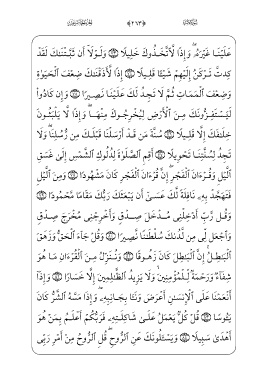 عَلَيْنَا غَيْرَهُۥ ۖ وَإِذًا لَّٱتَّخَذُوكَ خَلِيلًا ﴿٧٣﴾ وَلَوْلَآ أَن ثَبَّتْنَٰكَ لَقَدْ
كِدتَّ تَرْكَنُ إِلَيْهِمْ شَيْـًٔا قَلِيلًا ﴿٧٤﴾ إِذًا لَّأَذَقْنَٰكَ ضِعْفَ ٱلْحَيَوٰةِ
وَضِعْفَ ٱلْمَمَاتِ ثُمَّ لَا تَجِدُ لَكَ عَلَيْنَا نَصِيرًا ﴿٧٥﴾ وَإِن كَادُوا۟
لَيَسْتَفِزُّونَكَ مِنَ ٱلْأَرْضِ لِيُخْرِجُوكَ مِنْهَا ۖ وَإِذًا لَّا يَلْبَثُونَ
خِلَٰفَكَ إِلَّا قَلِيلًا ﴿٧٦﴾ سُنَّةَ مَن قَدْ أَرْسَلْنَا قَبْلَكَ مِن رُّسُلِنَا ۖ وَلَا
تَجِدُ لِسُنَّتِنَا تَحْوِيلًا ﴿٧٧﴾ أَقِمِ ٱلصَّلَوٰةَ لِدُلُوكِ ٱلشَّمْسِ إِلَىٰ غَسَقِ
ٱلَّيْلِ وَقُرْءَانَ ٱلْفَجْرِ ۖ إِنَّ قُرْءَانَ ٱلْفَجْرِ كَانَ مَشْهُودًا ﴿٧٨﴾ وَمِنَ ٱلَّيْلِ
فَتَهَجَّدْ بِهِۦ نَافِلَةً لَّكَ عَسَىٰٓ أَن يَبْعَثَكَ رَبُّكَ مَقَامًا مَّحْمُودًا ﴿٧٩﴾
وَقُل رَّبِّ أَدْخِلْنِى مُدْخَلَ صِدْقٍ وَأَخْرِجْنِى مُخْرَجَ صِدْقٍ
وَٱجْعَل لِّى مِن لَّدُنكَ سُلْطَٰنًا نَّصِيرًا ﴿٨٠﴾ وَقُلْ جَآءَ ٱلْحَقُّ وَزَهَقَ
ٱلْبَٰطِلُ ۚ إِنَّ ٱلْبَٰطِلَ كَانَ زَهُوقًا ﴿٨١﴾ وَنُنَزِّلُ مِنَ ٱلْقُرْءَانِ مَا هُوَ
شِفَآءٌ وَرَحْمَةٌ لِّلْمُؤْمِنِينَ ۙ وَلَا يَزِيدُ ٱلظَّٰلِمِينَ إِلَّا خَسَارًا ﴿٨٢﴾ وَإِذَآ
أَنْعَمْنَا عَلَى ٱلْإِنسَٰنِ أَعْرَضَ وَنَـَٔا بِجَانِبِهِۦ ۖ وَإِذَا مَسَّهُ ٱلشَّرُّ كَانَ
يَـُٔوسًا ﴿٨٣﴾ قُلْ كُلٌّ يَعْمَلُ عَلَىٰ شَاكِلَتِهِۦ فَرَبُّكُمْ أَعْلَمُ بِمَنْ هُوَ
أَهْدَىٰ سَبِيلًا ﴿٨٤﴾ وَيَسْـَٔلُونَكَ عَنِ ٱلرُّوحِ ۖ قُلِ ٱلرُّوحُ مِنْ أَمْرِ رَبِّى